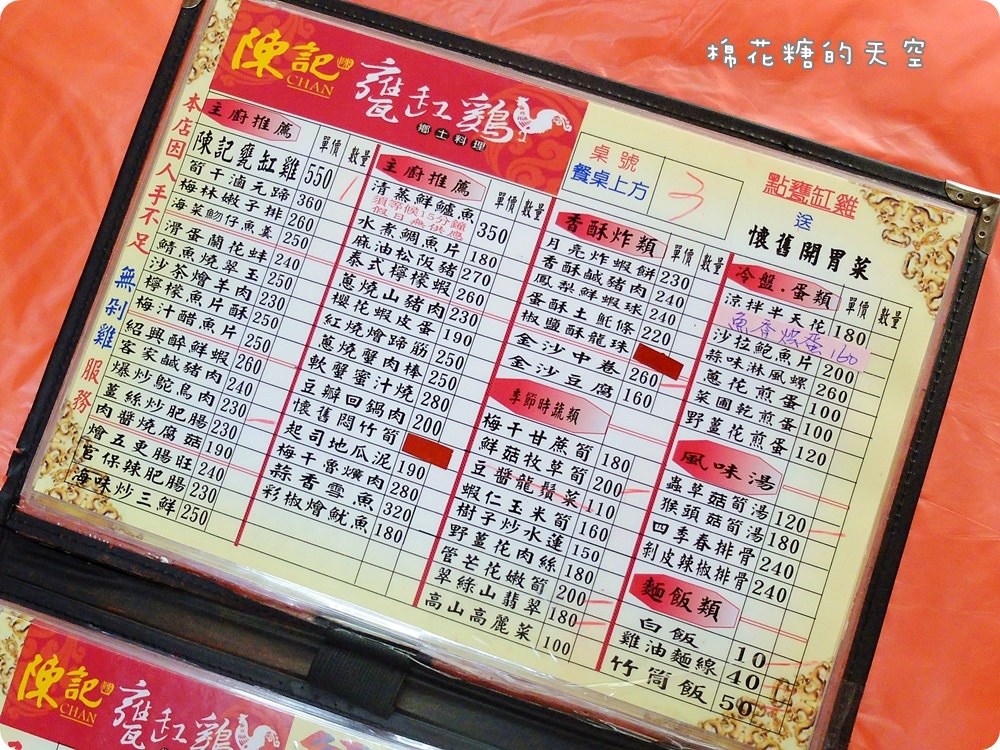 棉花糖的天空
陳記
CHAN
甕缸雞
鄉土料理
本店因人手不足 無剁雞服務
桌號
餐桌上方
3
點甕缸雞
送
懷舊開胃菜
主廚推薦 單價 數量
陳記甕缸雞 550 1
筍干滷元蹄 360
梅林嫩子排 260
海菜魩仔魚羹 250
滑蛋蘭花蚌 240
鯖魚燒翠玉 250
沙茶燴羊肉 230
檸檬魚片酥 250
梅汁醋魚片 250
紹興醉鮮蝦 260
客家鹹豬肉 240
爆炒鴕鳥肉 230
薑絲炒肥腸 230
肉醬燒腐菇 190
燴五更腸旺 240
官保辣肥腸 230
海味炒三鮮 250
主廚推薦 單價 數量
清蒸鮮鱸魚 350
須等候15分鐘
假日無供應
水煮鯛魚片 180
麻油松阪豬 270
泰式檸檬蝦 260
蔥燒山豬肉 230
櫻花蝦皮蛋 190
紅燒燴蹄筋 250
蔥燒蟹肉棒 250
軟蟹蜜汁燒 280
豆瓣回鍋肉 200
懷舊悶竹筍
起司地瓜泥 190
梅干霉爌肉 280
蒜香雪魚 320
彩椒燴魷魚 180
香酥炸類 單價 數量
月亮炸蝦餅 230
香酥鹹豬肉 240
鳳梨鮮蝦球 240
蛋酥土魠條 220
椒鹽酥龍珠
金沙中卷 260
金沙豆腐 160
季節時蔬類
梅干甘蔗筍 180
鮮菇牧草筍 200
豆醬龍鬚菜 110
蝦仁玉米筍 160
樹子炒水蓮 150
野薑花肉絲 180
管芒花嫩筍 200
翠綠山翡翠 180
高山高麗菜 100
冷盤.蛋類 單價 數量
涼拌半天花 180
魚香烘蛋 160
沙拉鮑魚片 200
蒜味淋風螺 260
蔥花煎蛋 100
菜圃乾煎蛋 100
野薑花煎蛋 120
風味湯
蟲草菇筍湯 120
猴頭菇筍湯 180
四季春排骨 240
剝皮辣椒排骨 240
麵飯類
白飯 10
雞油麵線 40
竹筒飯 50
陳記
CHAN
甕缸雞